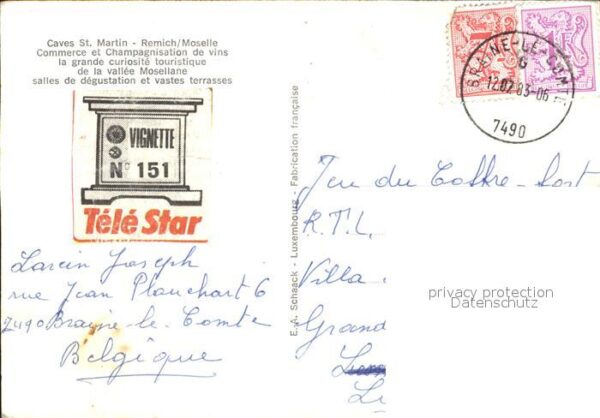 Caves St. Martin - Remich/Moselle
Commerce et Champagnisation de vins
la grande curiosité touristique
de la vallée Mosellane
salles de dégustation et vastes terrasses
VIGNETTE
N° 151
Télé Star
Larcin Joseph
rue Jean Planchart 6
7490 Braine-le-Comte
Belgique
E. A. Schaack - Luxembourg - Fabrication française
BRAINE-LE-COMTE
G
12.07.83-06
7490
Jeu du Coffre-fort
R.T.L.
Villa
Grand
privacy protection
Datenschutz